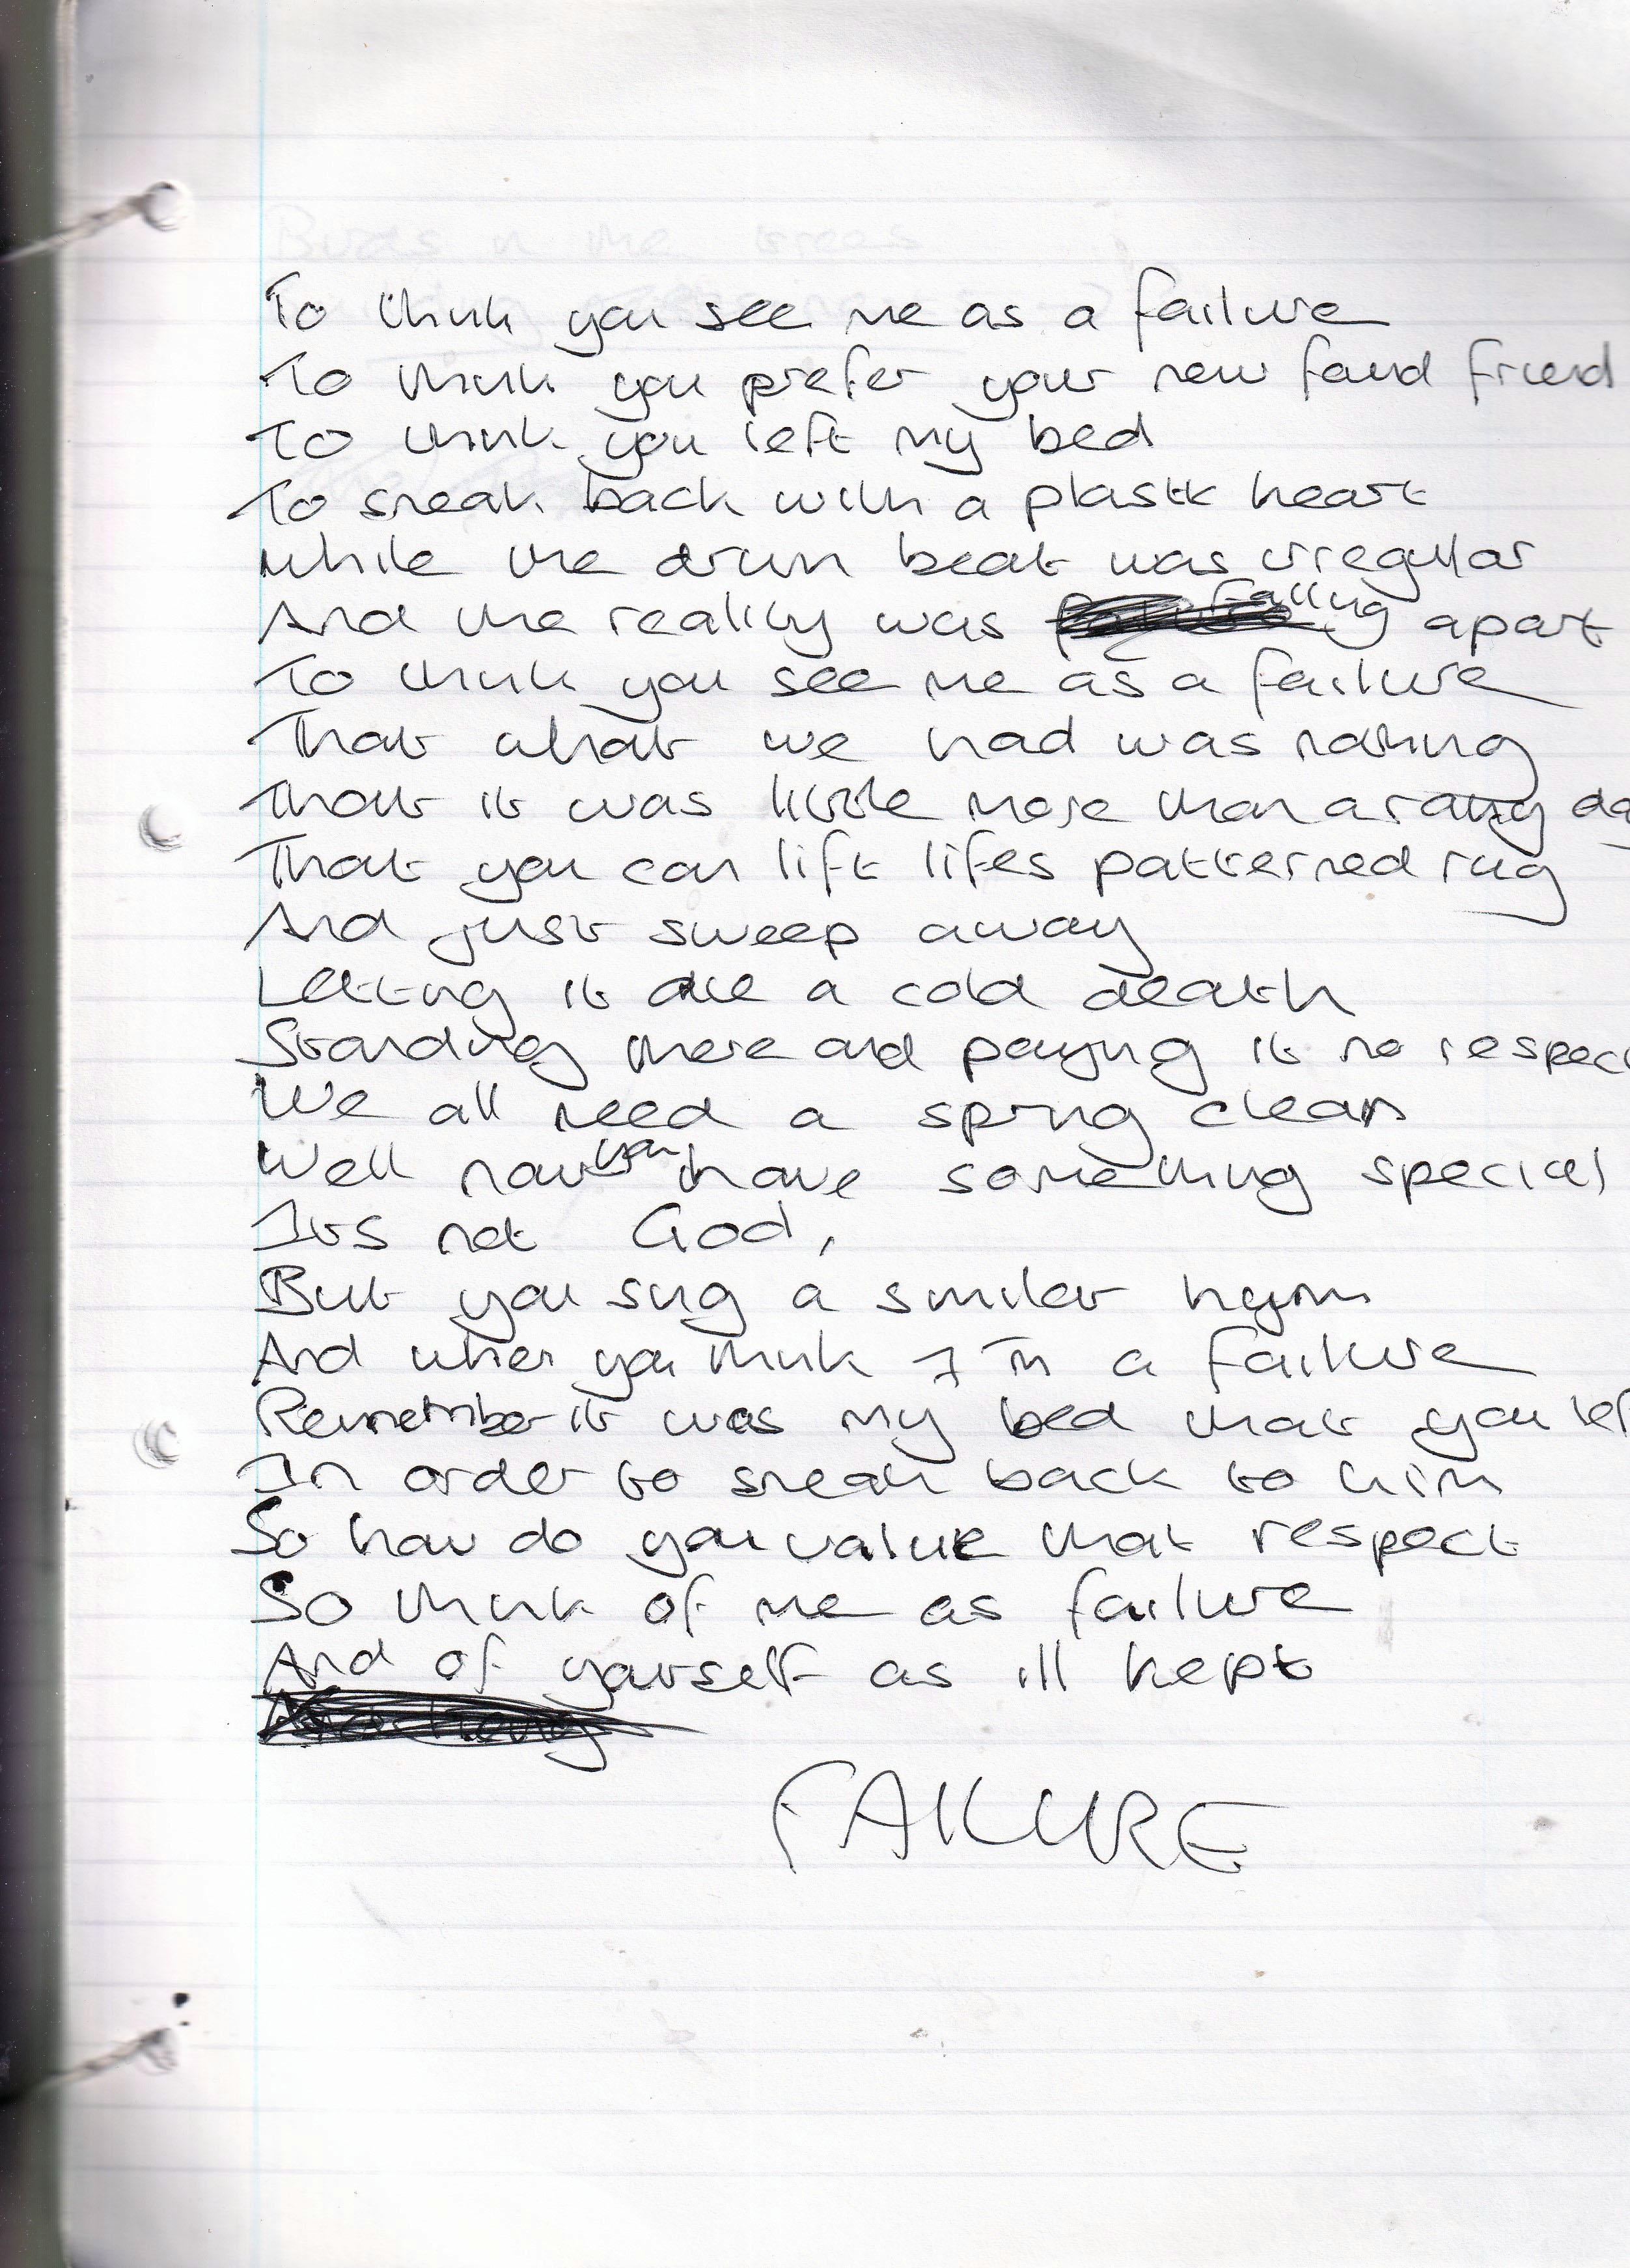 To think you see me as a failure
To think you prefer your new found friend
To think you left my bed
To sneak back with a plastic heart
while the drum beat was irregular
And the reality was falling apart
To think you see me as a failure
That what we had was nothing
That it was little more than a rainy da
That you can lift lifes patterned rug
And just sweep away
Letting it die a cold death
Standing there and paying it no respec
We all need a spring clean
Well now you have something special
Its not God,
But you sing a similar hymn
And when you think I'm a failure
Remember it was my bed that you lef
In order to sneak back to him
So how do you value that respect
So think of me as failure
And of yourself as ill kept
FAILURE